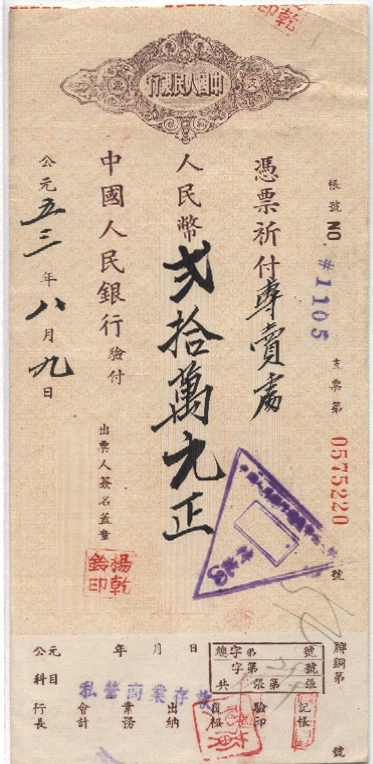 中國人民銀行
帳號 NO. #1105 支票第 0575220 號
憑票祈付專賣處
人民幣貳拾萬元正
中國人民銀行驗付
出票人簽名蓋章
楊乾鈴印
公元五三年八月九日
牌銅第 號
總字第 號
字第 號
共 張第 張
公元 年 月 日
科目
私營商業存款
行長 會計 業務 出納 復核 驗印 記帳